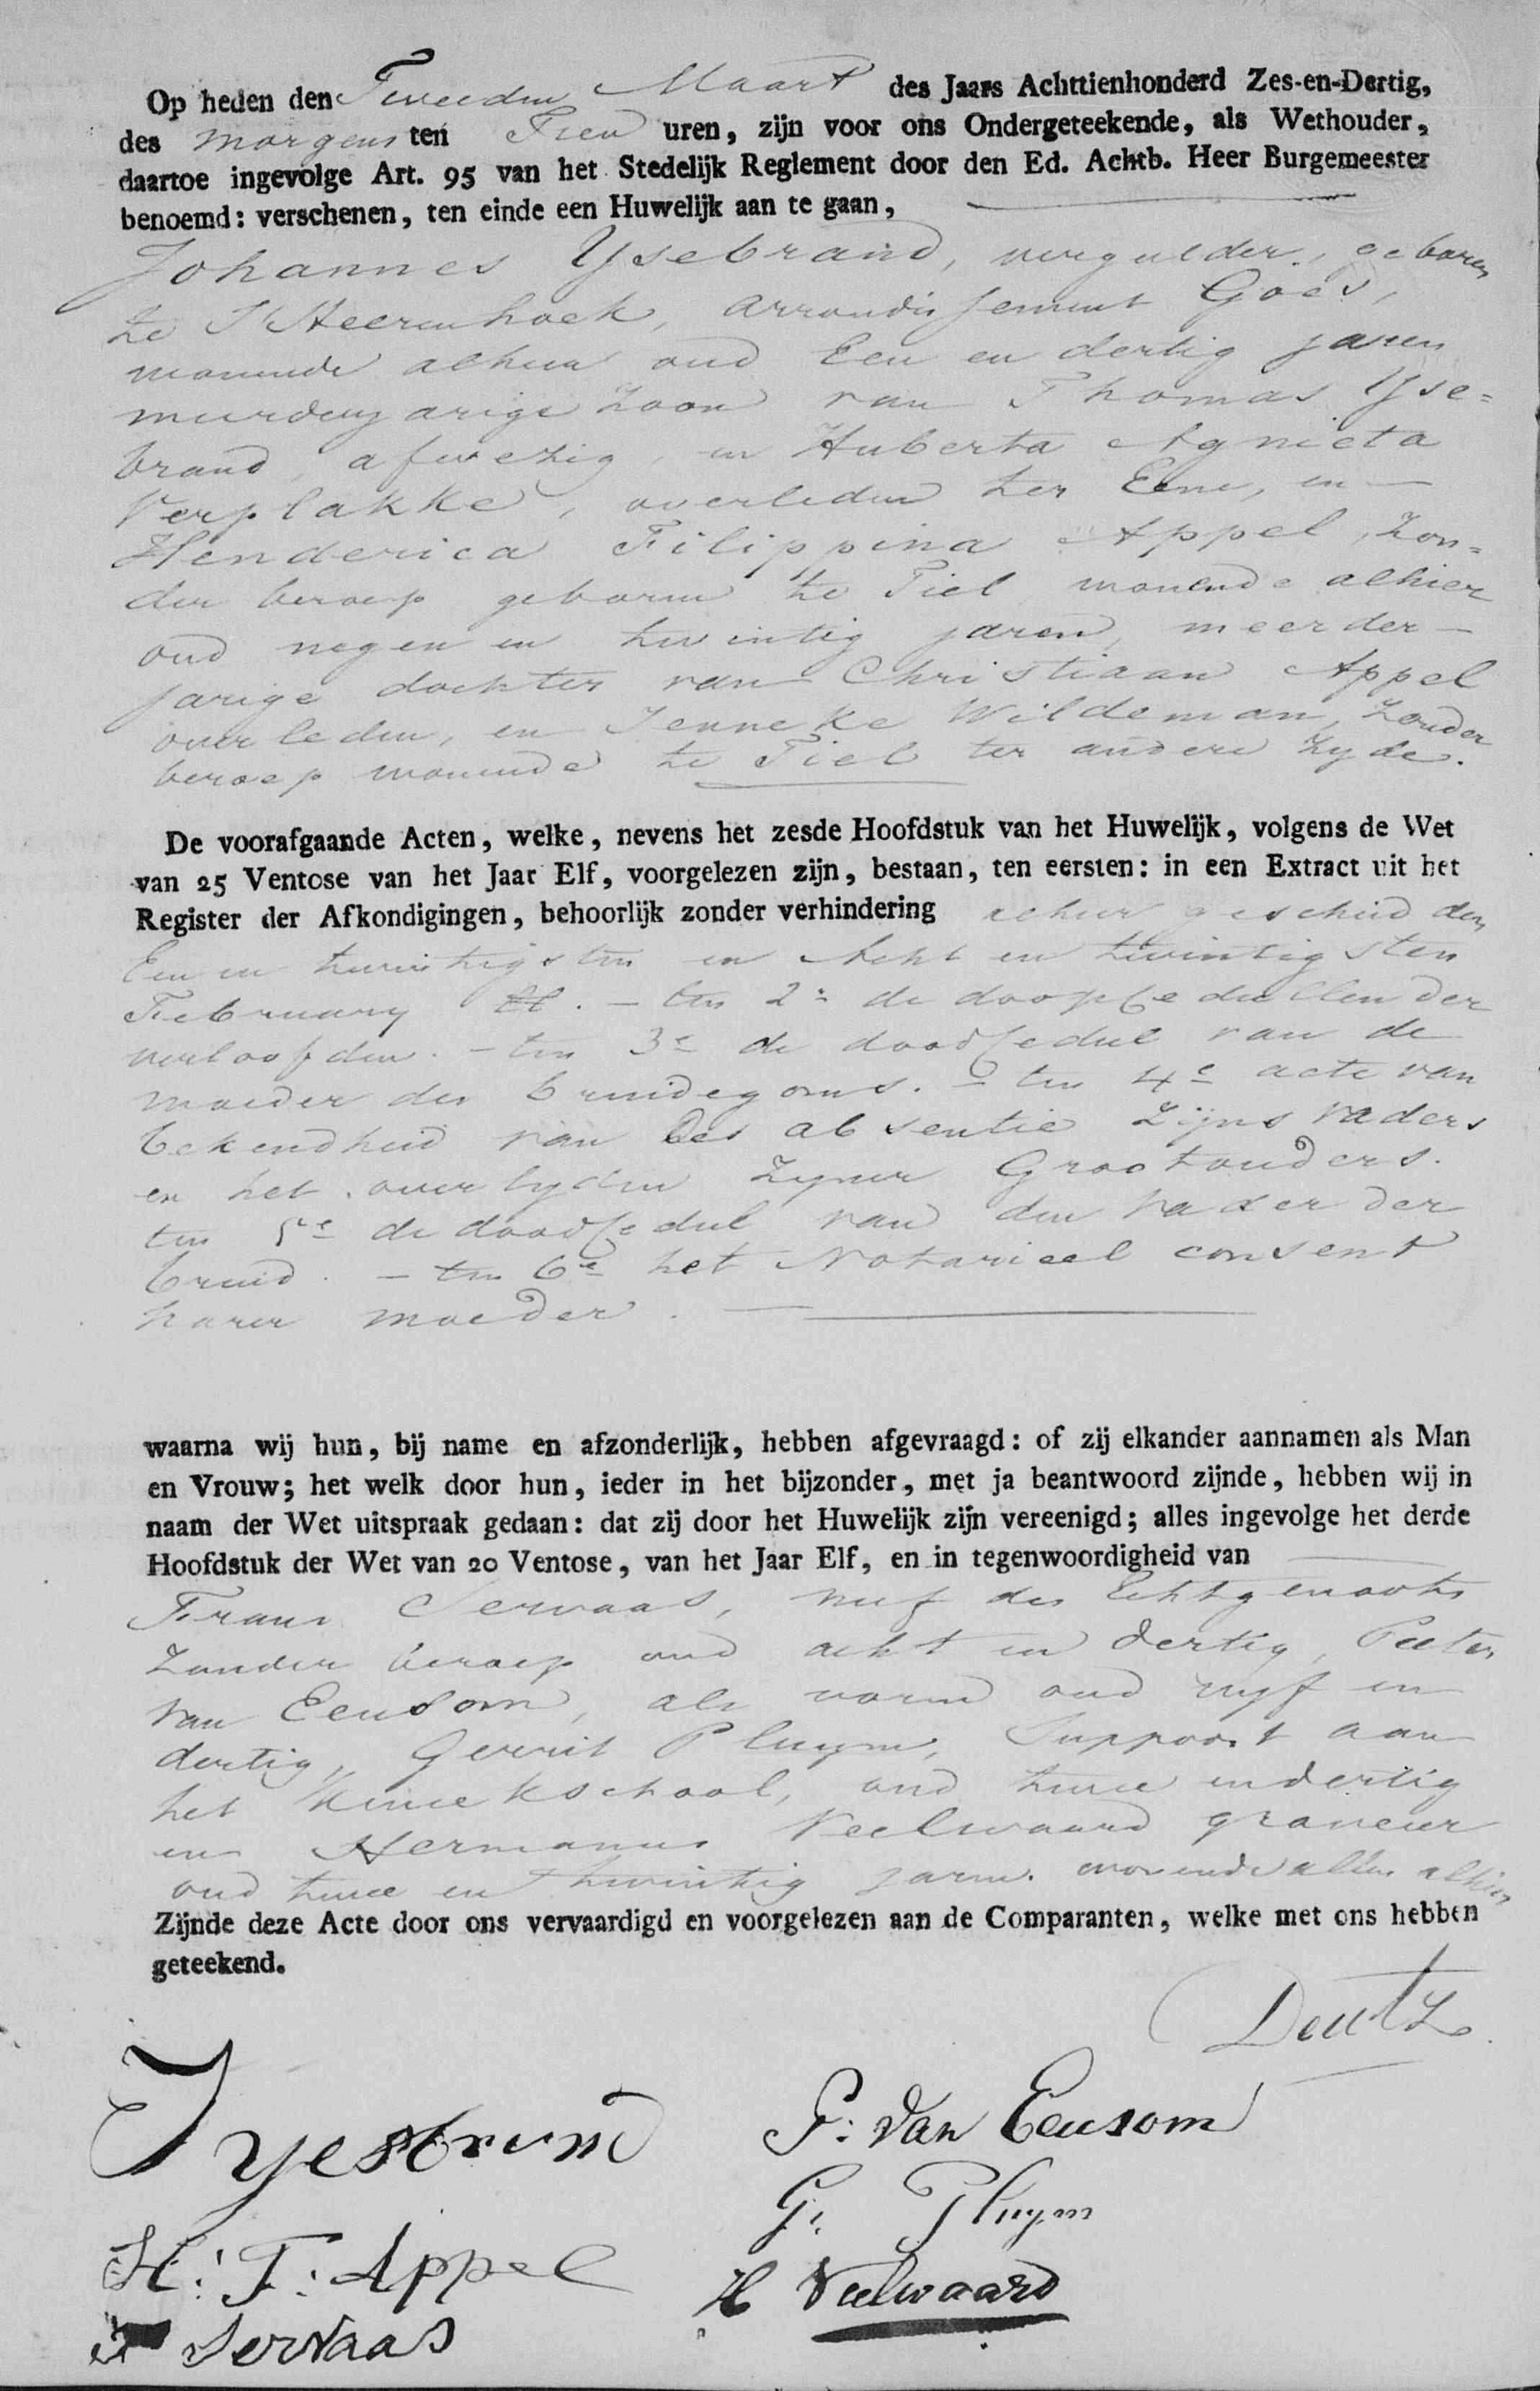 Op heden den Tweeden Maart des Jaars Achttienhonderd Zes-en-Dertig,
des morgens ten Tien uren, zijn voor ons Ondergeteekende, als Wethouder,
daartoe ingevolge Art. 95 van het Stedelijk Reglement door den Ed. Achtb. Heer Burgemeester
benoemd: verschenen, ten einde een Huwelijk aan te gaan,
Johannes Ysebrand, vergulder, geboren
te 'S Heerenhoek, arrondissement Goes,
wonende alhier oud Een en dertig jaren
meerderjarige zoon van Thomas Yse=
brand, afwezig, en Huberta Agnieta
Verplakke, overleden ter Eene, en
Henderica Filippina Appel, zon=
der beroep geboren te Tiel wonende alhier
oud negen en twintig jaren, meerder-
jarige dochter van Christiaan Appel
overleden, en Jenneke Wildeman, zonder
beroep wonende te Tiel ter andere zyde.
De voorafgaande Acten, welke, nevens het zesde Hoofdstuk van het Huwelijk, volgens de Wet
van 25 Ventose van het Jaar Elf, voorgelezen zijn, bestaan, ten eersten: in een Extract uit het
Register der Afkondigingen, behoorlijk zonder verhindering alhier geschied den
Een en twintigsten en Acht en twintigsten
February ll. - ten 2e de doopcedullen der
verloofden. - ten 3e de doodcedul van de
moeder des bruidegoms. - ten 4e acte van
bekendheid van des absentie zijns vaders
en het overlyden zyner Grootouders.
ten 5e de doodcedul van den vader der
bruid. - ten 6e het Notarieel consent
harer moeder.
waarna wij hun, bij name en afzonderlijk, hebben afgevraagd: of zij elkander aannamen als Man
en Vrouw; het welk door hun, ieder in het bijzonder, met ja beantwoord zijnde, hebben wij in
naam der Wet uitspraak gedaan: dat zij door het Huwelijk zijn vereenigd; alles ingevolge het derde
Hoofdstuk der Wet van 20 Ventose, van het Jaar Elf, en in tegenwoordigheid van
Frans Servaas, neef des Echtgenoots
zonder beroep oud acht en dertig, Pieter
van Eensom, als voren oud vyf en
dertig, Gerrit Pluym, Suppoost aan
het Kweekschool, oud twee en dertig
en Hermanus Veelwaard graveur
oud twee en twintig jaren. wonende allen alhier
Zijnde deze Acte door ons vervaardigd en voorgelezen aan de Comparanten, welke met ons hebben
geteekend.
Deutz
P: Van Eensom
G: Pluym
H: F: Appel
H Veelwaard
Servaas